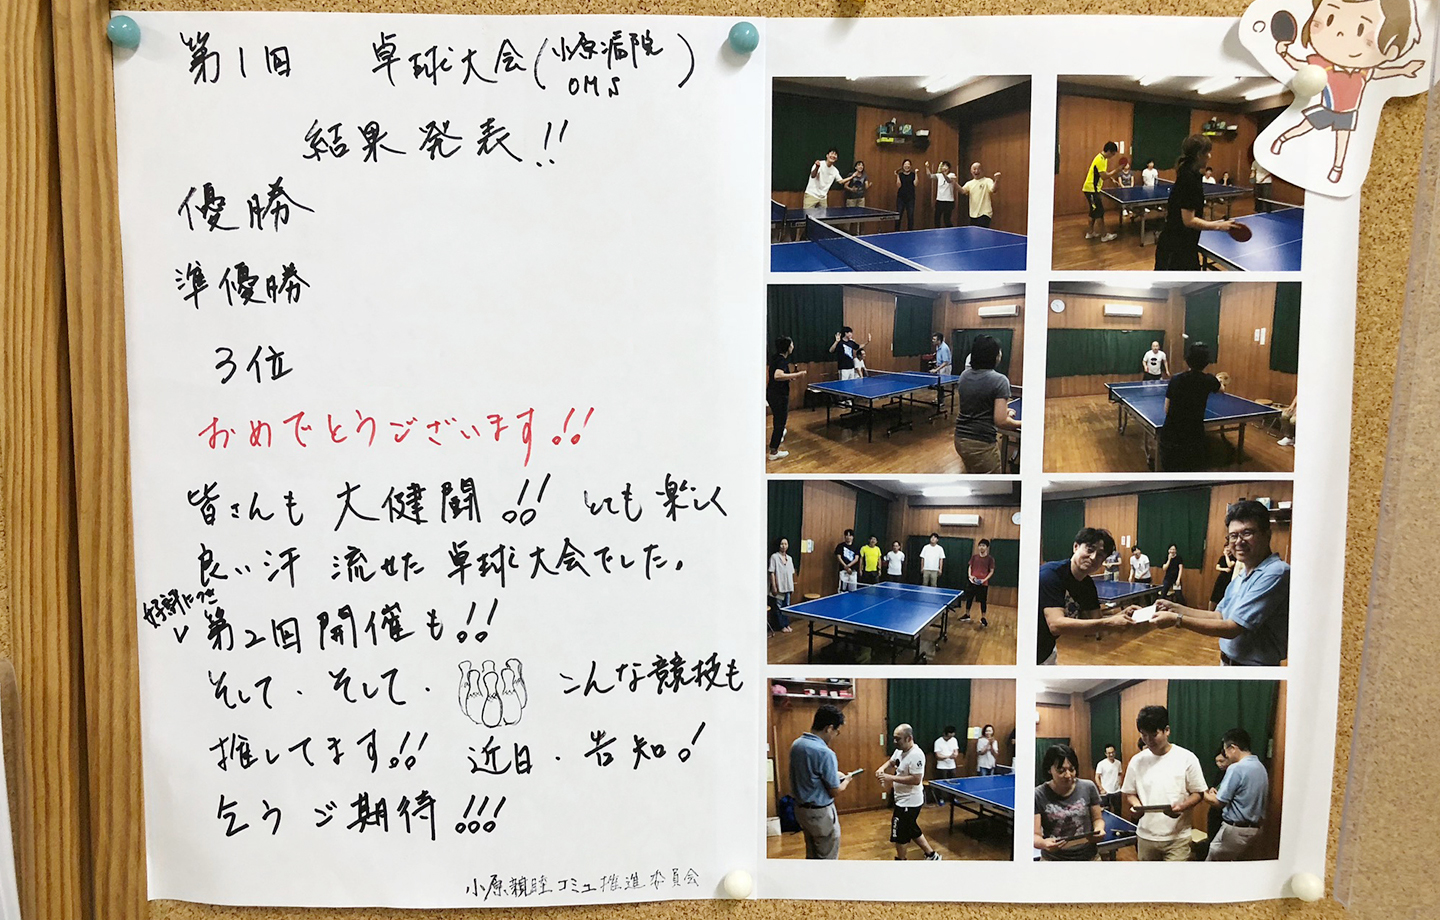 第1回 卓球大会(小原病院 OMS)
結果発表!!
優勝
準優勝
3位
おめでとうございます!!
皆さんも 大健闘!! とても楽しく
良い汗 流せた 卓球大会でした。
好評につき
第2回開催も!!
そして・そして・ こんな競技も
推してます!! 近日・告知!
乞うご期待!!!
小原親睦コミュ推進委員会